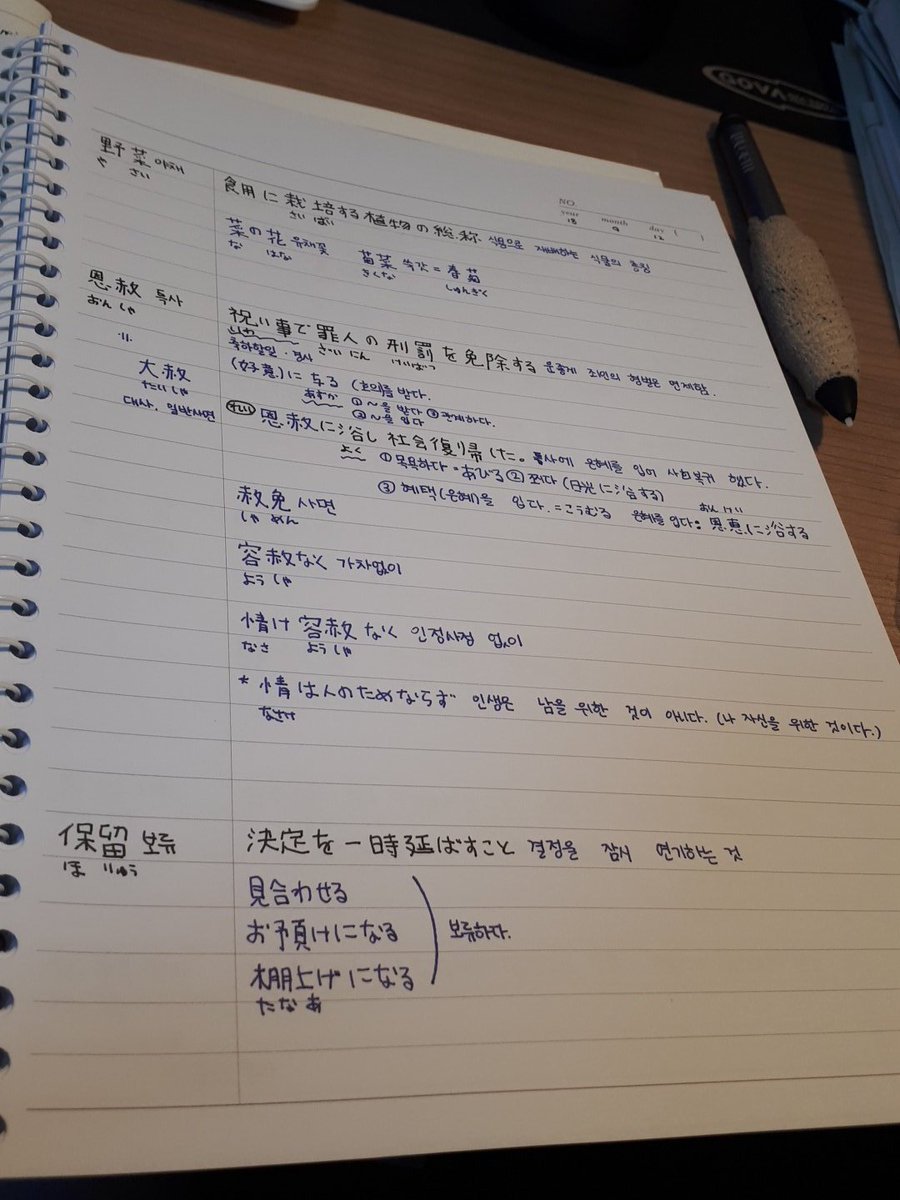 NO.
year month day ( )
18 9 12
野菜 야채
や さい
食用に栽培する植物の総称 식용으로 재배하는 식물의 총칭
さい ばい
菜の花 유채꽃 菊菜 쑥갓 = 春菊
な はな きくな しゅんぎく
恩赦 특사
おん しゃ
祝い事で罪人の刑罰を免除する 죄인의 형벌은 면제함.
いわ ざい にん けいばつ
축하할일·경사
〃
大赦
たい しゃ
대사. 일반사면
(好意)に与る (호의)를 받다.
あずか ①~을 받다 ③관계하다.
②~을 입다
恩赦に浴し社会復帰した。 특사에 은혜를 입어 사회복귀 했다.
よく ①목욕하다 = あびる ② 쬐다 (日光に浴する)
③ 혜택(은혜)을 입다. = こうむる 은혜를 입다: 恩恵に浴する
おん けい
赦免 사면
しゃ めん
容赦なく 가차없이
よう しゃ
情け容赦なく 인정사정 없이
なさ よう しゃ
* 情は人のためならず 인생은 남을 위한 것이 아니다. (나 자신을 위한 것이다.)
なさけ
保留 보류
ほ りゅう
決定を一時延ばすこと 결정을 잠시 연기하는 것
見合わせる
お預けになる 보류하다.
棚上げになる
たな あ